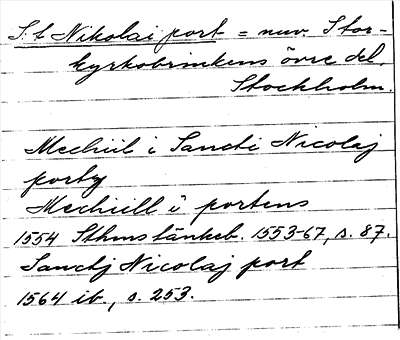 S:t Nikolai port = nuv. Stor-
kyrkobrinkens övre del.
Stockholm.
Mechiil i Sancti Nicolaj
porty
Mechiell i portens
1554 Sthms tänkeb. 1553-67, s. 87.
Sanctj Nicolaj port
1564 ib., s. 253.